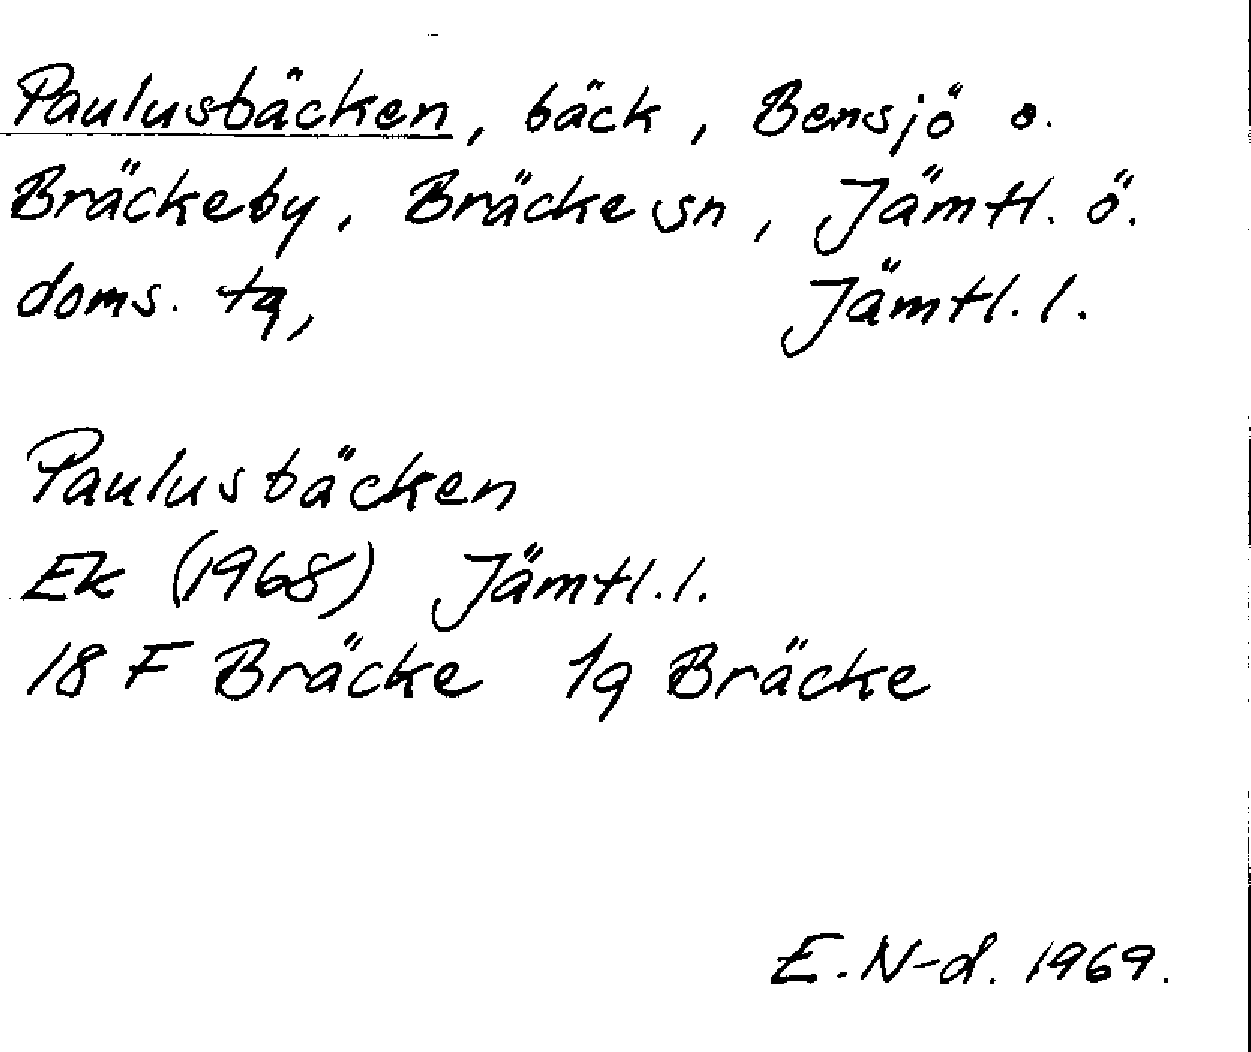 Paulusbäcken, bäck, Bensjö o.
Bräckeby, Bräcke sn, Jämtl. ö.
doms. tg, Jämtl. l.
Paulusbäcken
Ek (1968) Jämtl. l.
18 F Bräcke 1g Bräcke
E. N-d. 1969.